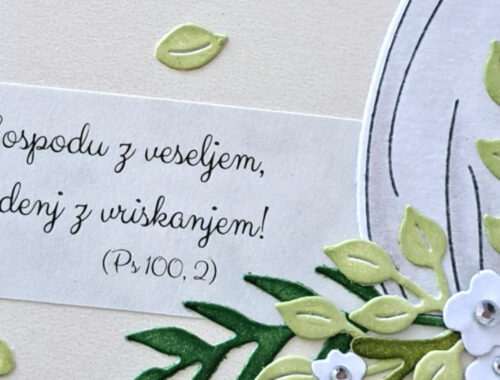 ospodu z veseljem,
denj z vriskanjem!
(Ps 100, 2)